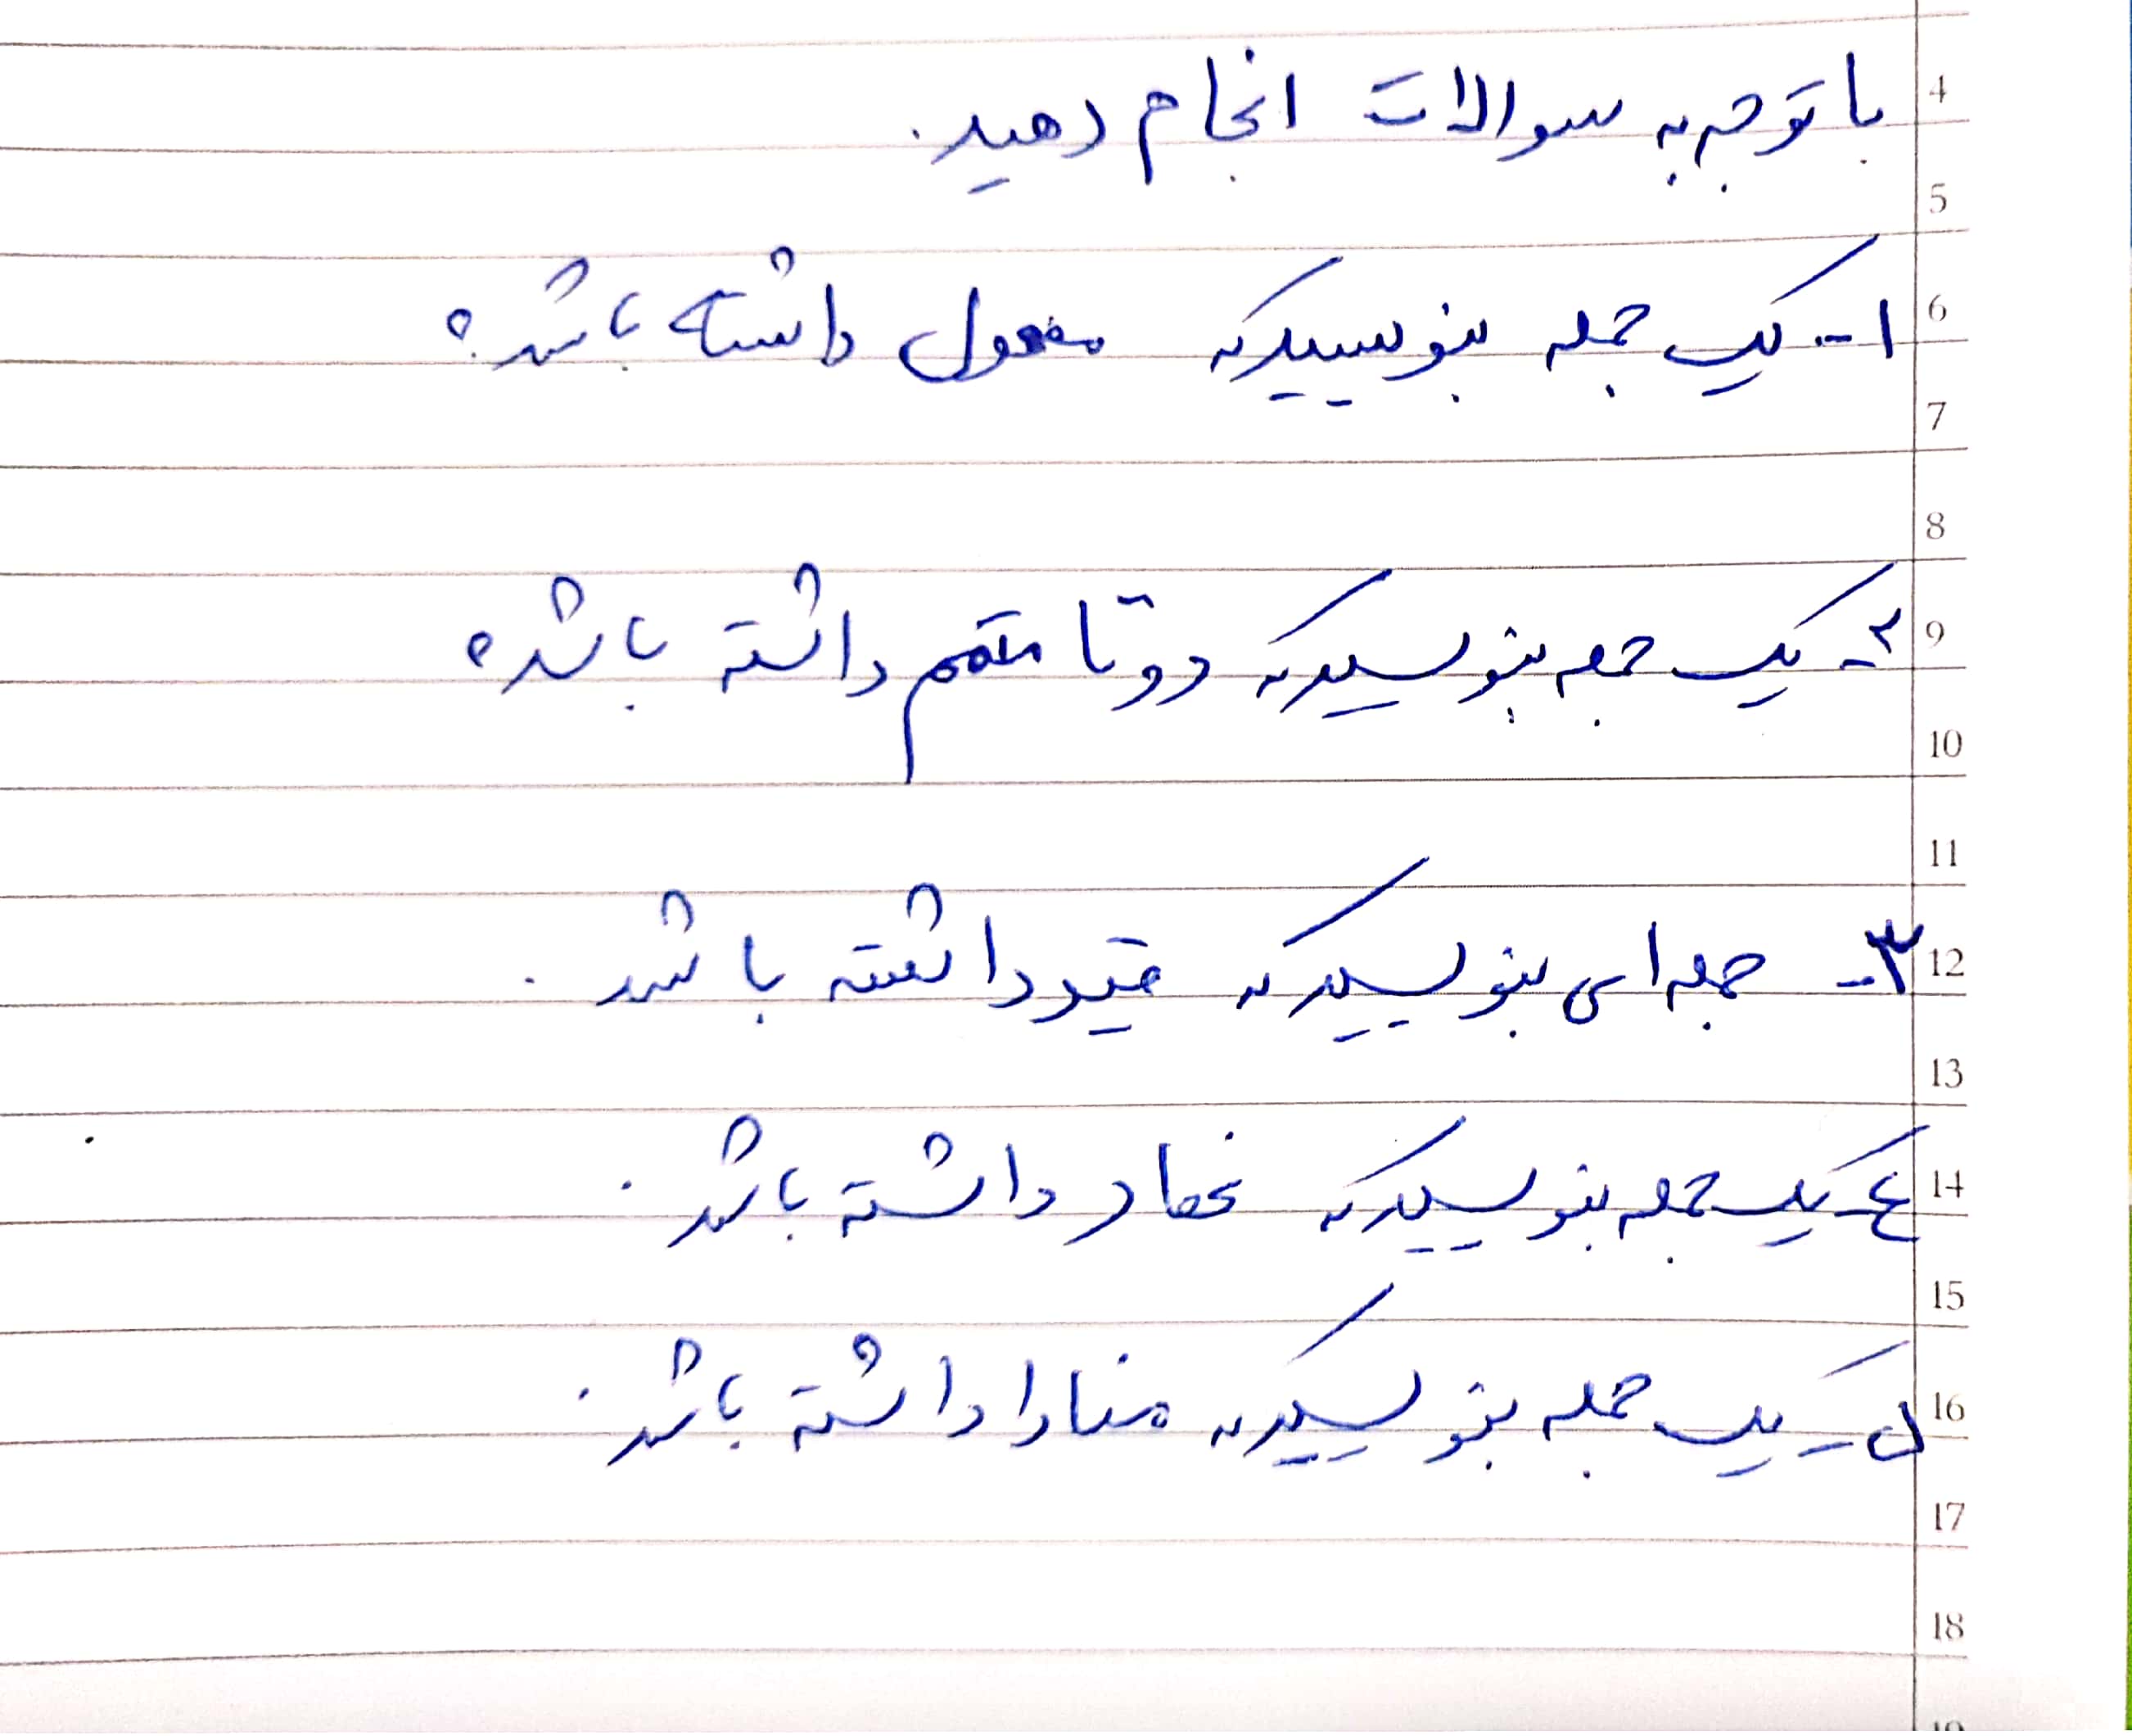 با توجه به سوالات انجام دهید.
4
5
۱- یک جمله بنویسید که مفعول داشته باشد.
6
7
8
۲- یک جمله بنویسید که دوتا متمم داشته باشد.
9
10
11
۳- جمله ای بنویسید که قید داشته باشد.
12
13
۴- یک جمله بنویسید که نهاد داشته باشد.
14
15
۵- یک جمله بنویسید که منادا داشته باشد.
16
17
18